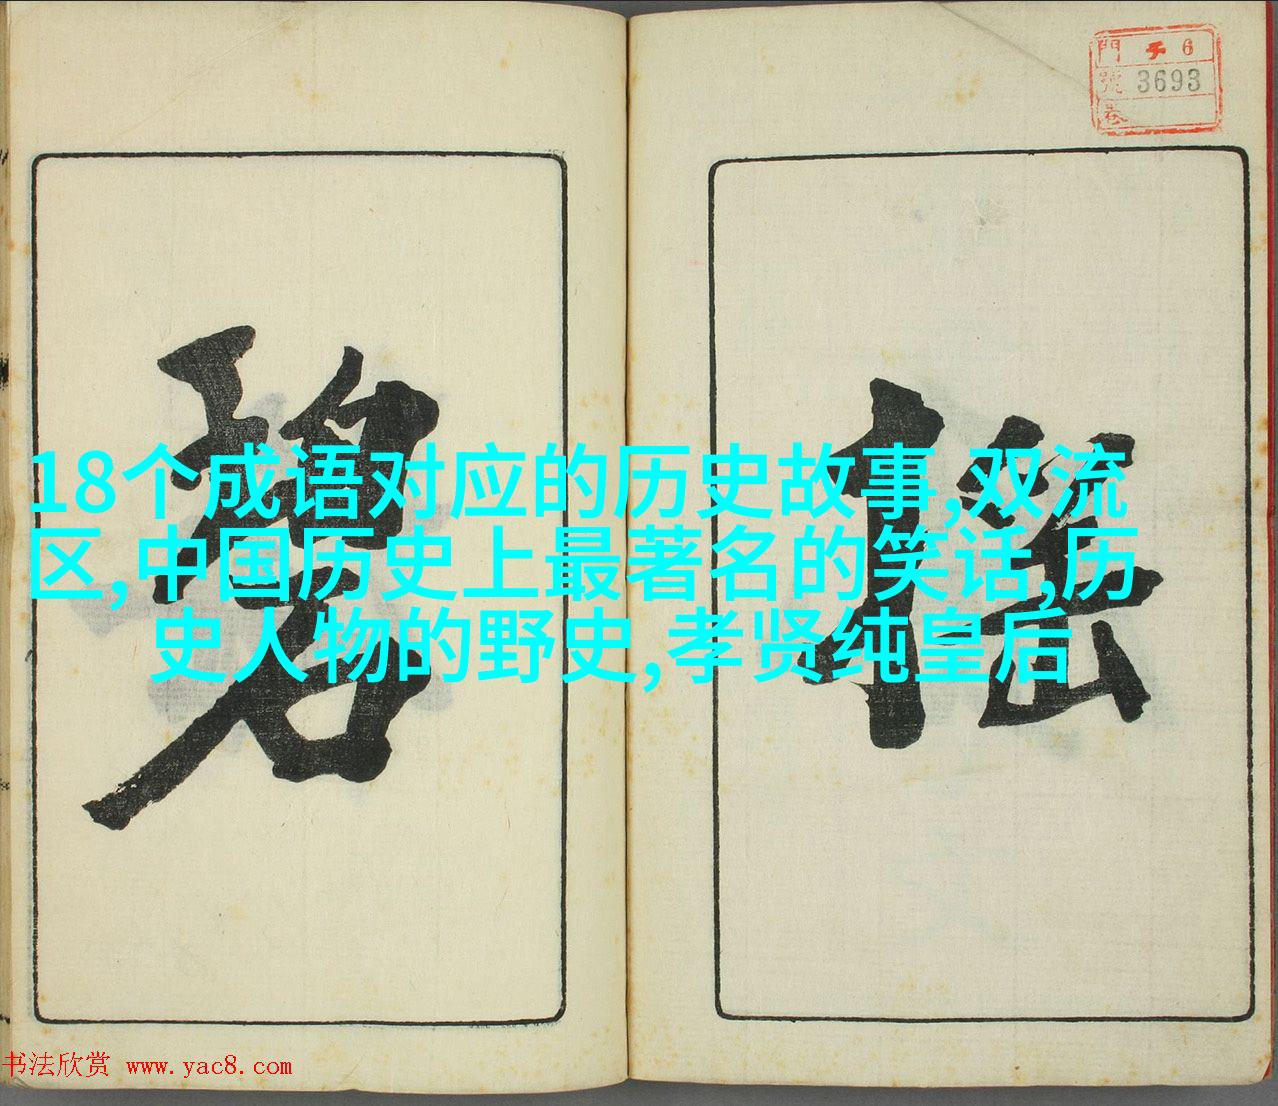 門 子 6
號 3693
卷
搖
碧
18个成语对应的历史故事,双流
区,中国历史上最著名的笑话,历
史人物的野史,孝贤纯皇后
书法欣赏 www.yac8.com